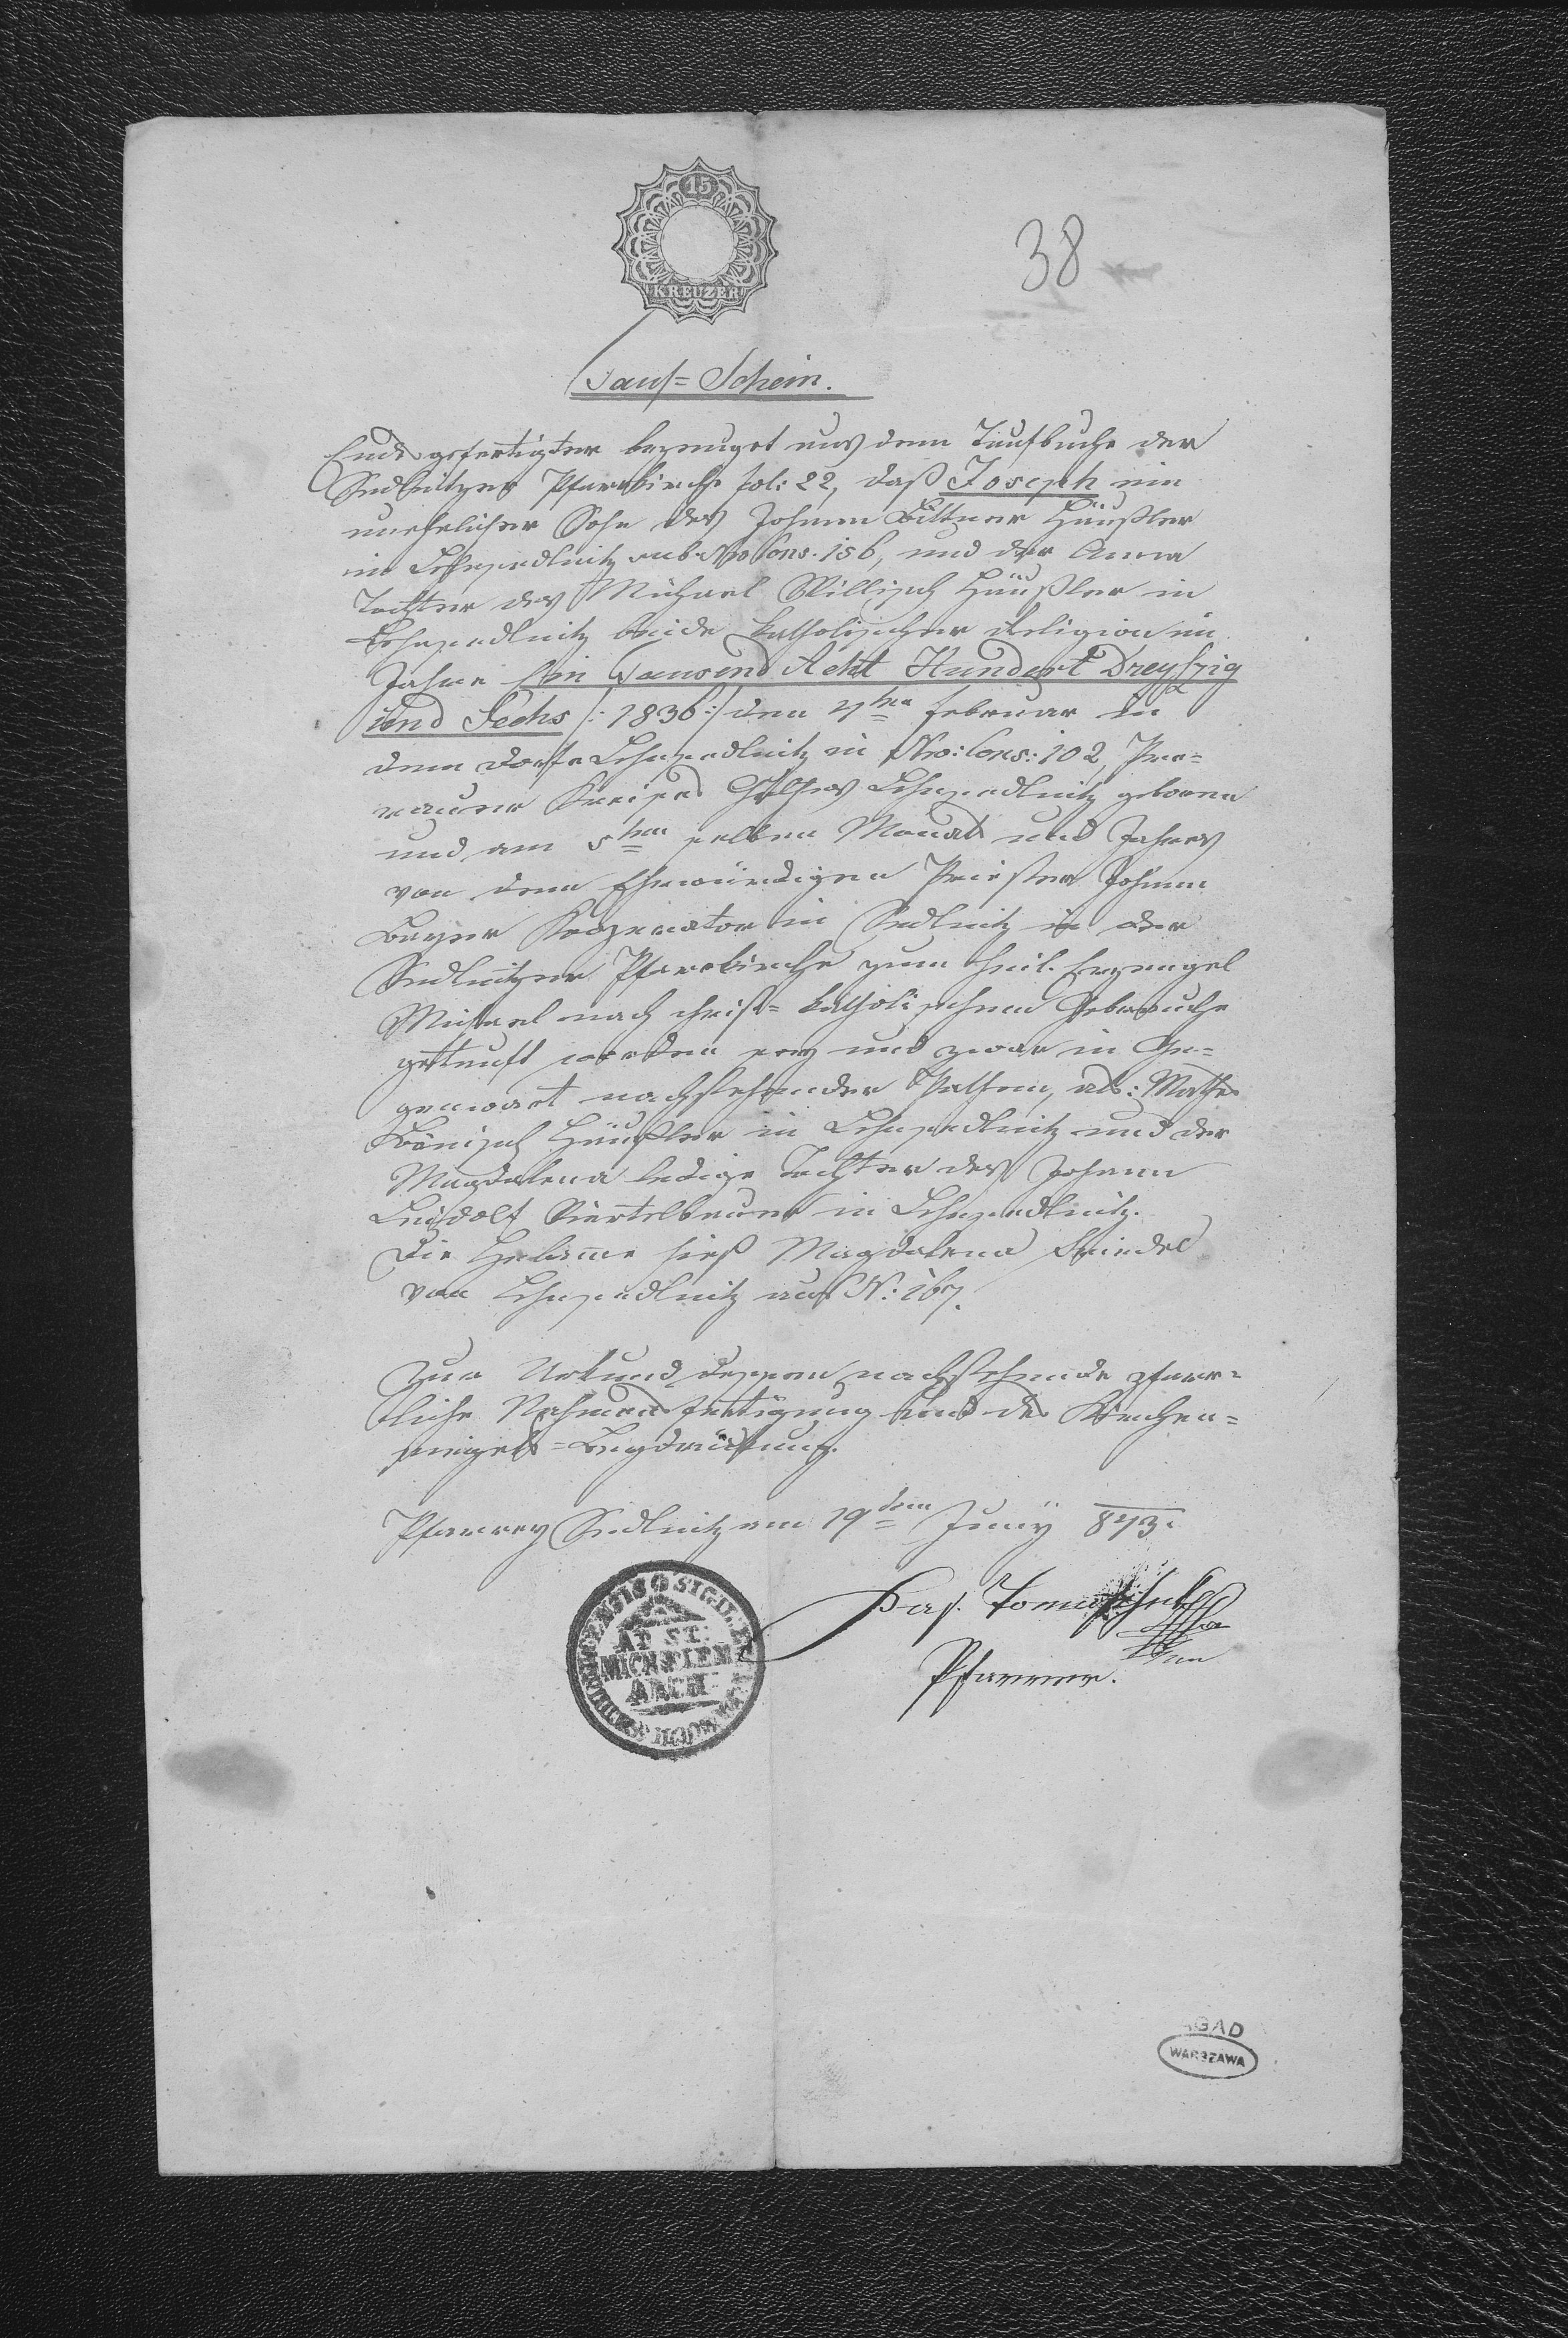 15
KREUZER
38
Tauf=Schein.
Endesgefertigter bezeuget aus dem Taufbuche der
Sedlnitzer Pfarrkirche fol: 22, daß Joseph ein
unehelicher Sohn des Johann Bittner Häußler
in Lehnsedlnitz sub Nro Cons. 156, und der Anna
Tochter des Michael Willisch Häußler in
Lehnsedlnitz beide katholischer Religion im
Jahre Ein Tausend Acht Hundert Dreyßzig
und Sechs /: 1836 :/ den 4ten Februar in
dem Dorfe Lehnsedlnitz in Nro: Cons: 102, Pre=
rauer Kreises Gutes Lehnsedlnitz geboren
und am 5ten selben Monats und Jahres
von dem Ehrwürdigen Priester Johann
Bayer Kooperator in Sedlnitz in der
Sedlnitzer Pfarrkirche zum heil. Erzengel
Michael nach christ=katholischem Gebrauche
getauft worden sey und zwar in Ge=
genwart nachstehender Pathen, als: Mathes
Bönisch Häußler in Lehnsedlnitz und der
Magdalena ledige Tochter des Johann
Viertelbauer in Lehnsedlnitz.
Die Hebamme hieß Magdalena
von Lehnsedlnitz aus N: 167.
Zur Urkund dessen nachstehende pfarr=
liche Nahmensfertigung und des Kirchen=
siegels=Beydrückung.
Pfarrey Sedlnitz am 19ten Juny 843.
Pfarrer.
SIGIL
AD ST:
MICHAELEM
ARCH:
AGAD
WARSZAWA